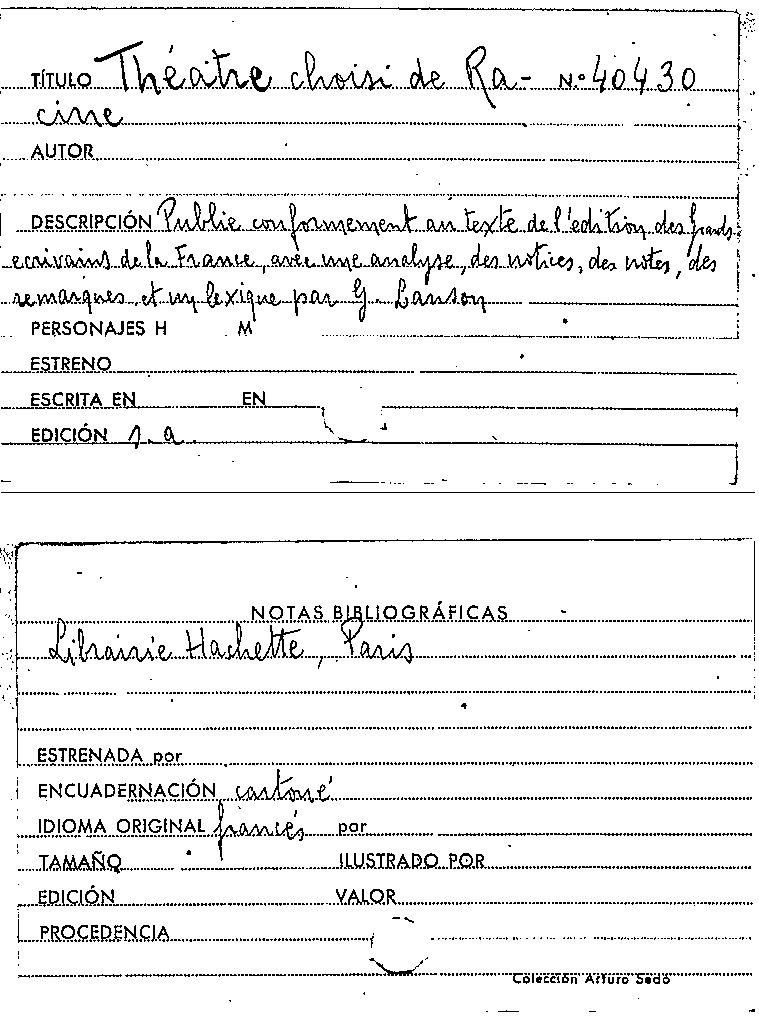 TÍTULO Théatre choisi de Ra- N.º 40430
cine
AUTOR
DESCRIPCIÓN Publie conformement au texte de l'edition des Grands
ecrivains de la France, avec une analyse, des notices, des notes, des
remarques et un lexique par G. Lanson
PERSONAJES H M
ESTRENO
ESCRITA EN EN
EDICIÓN 1.a
NOTAS BIBLIOGRÁFICAS
Librairie Hachette, Paris
ESTRENADA por
ENCUADERNACIÓN cartoné
IDIOMA ORIGINAL francés por
TAMAÑO ILUSTRADO POR
EDICIÓN VALOR
PROCEDENCIA
Colección Arturo Sedó